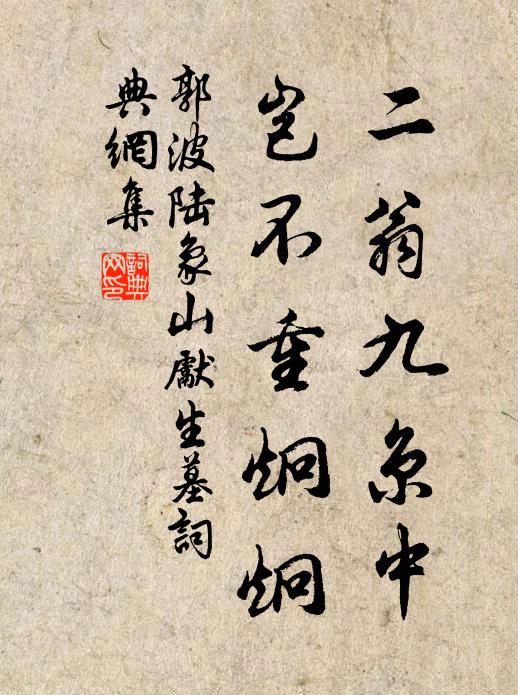 二翁九京中
岂不重炯炯
郭波陆象山獻生墓詞
典網集
詞典
网印